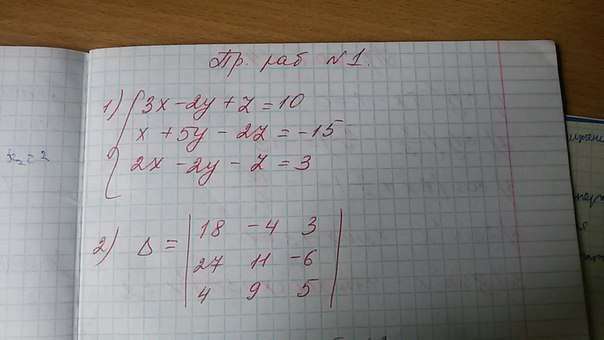 Пр. раб №1.
1) { 3x - 2y + z = 10
x + 5y - 2z = -15
2x - 2y - z = 3
x₂ = 2
2) Δ = | 18 -4 3 |
27 11 -6
4 9 5